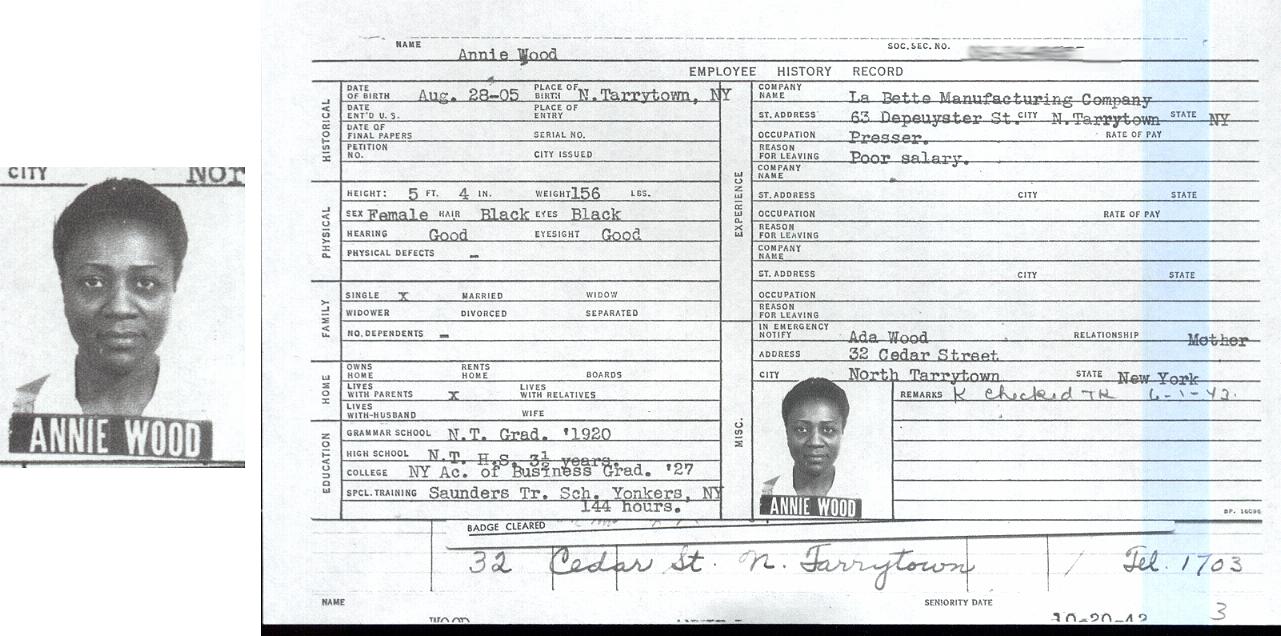 CITY NOR
ANNIE WOOD
NAME Annie Wood SOC. SEC. NO.
EMPLOYEE HISTORY RECORD
HISTORICAL
DATE OF BIRTH Aug. 28-05 PLACE OF BIRTH N.Tarrytown, NY
DATE ENT'D U.S. PLACE OF ENTRY
DATE OF FINAL PAPERS SERIAL NO.
PETITION NO. CITY ISSUED
PHYSICAL
HEIGHT: 5 FT. 4 IN. WEIGHT 156 LBS.
SEX Female HAIR Black EYES Black
HEARING Good EYESIGHT Good
PHYSICAL DEFECTS -
FAMILY
SINGLE X MARRIED WIDOW
WIDOWER DIVORCED SEPARATED
NO. DEPENDENTS -
HOME
OWNS HOME RENTS HOME BOARDS
LIVES WITH PARENTS X LIVES WITH RELATIVES
LIVES WITH-HUSBAND WIFE
EDUCATION
GRAMMAR SCHOOL N.T. Grad. '1920
HIGH SCHOOL N.T. H.S. 3½ years.
COLLEGE NY Ac. of Business Grad. '27
SPCL. TRAINING Saunders Tr. Sch. Yonkers, NY
144 hours.
EXPERIENCE
COMPANY NAME La Bette Manufacturing Company
ST. ADDRESS 63 Depeuyster St. CITY N.Tarrytown STATE NY
OCCUPATION Presser. RATE OF PAY
REASON FOR LEAVING Poor salary.
COMPANY NAME
ST. ADDRESS CITY STATE
OCCUPATION RATE OF PAY
REASON FOR LEAVING
COMPANY NAME
ST. ADDRESS CITY STATE
OCCUPATION
REASON FOR LEAVING
MISC.
IN EMERGENCY NOTIFY Ada Wood RELATIONSHIP Mother
ADDRESS 32 Cedar Street
CITY North Tarrytown STATE New York
REMARKS K checked TR 6-1-43.
ANNIE WOOD
BADGE CLEARED
32 Cedar St. N. Tarrytown / Tel. 1703
NAME SENIORITY DATE
WOOD 10-20-42 3